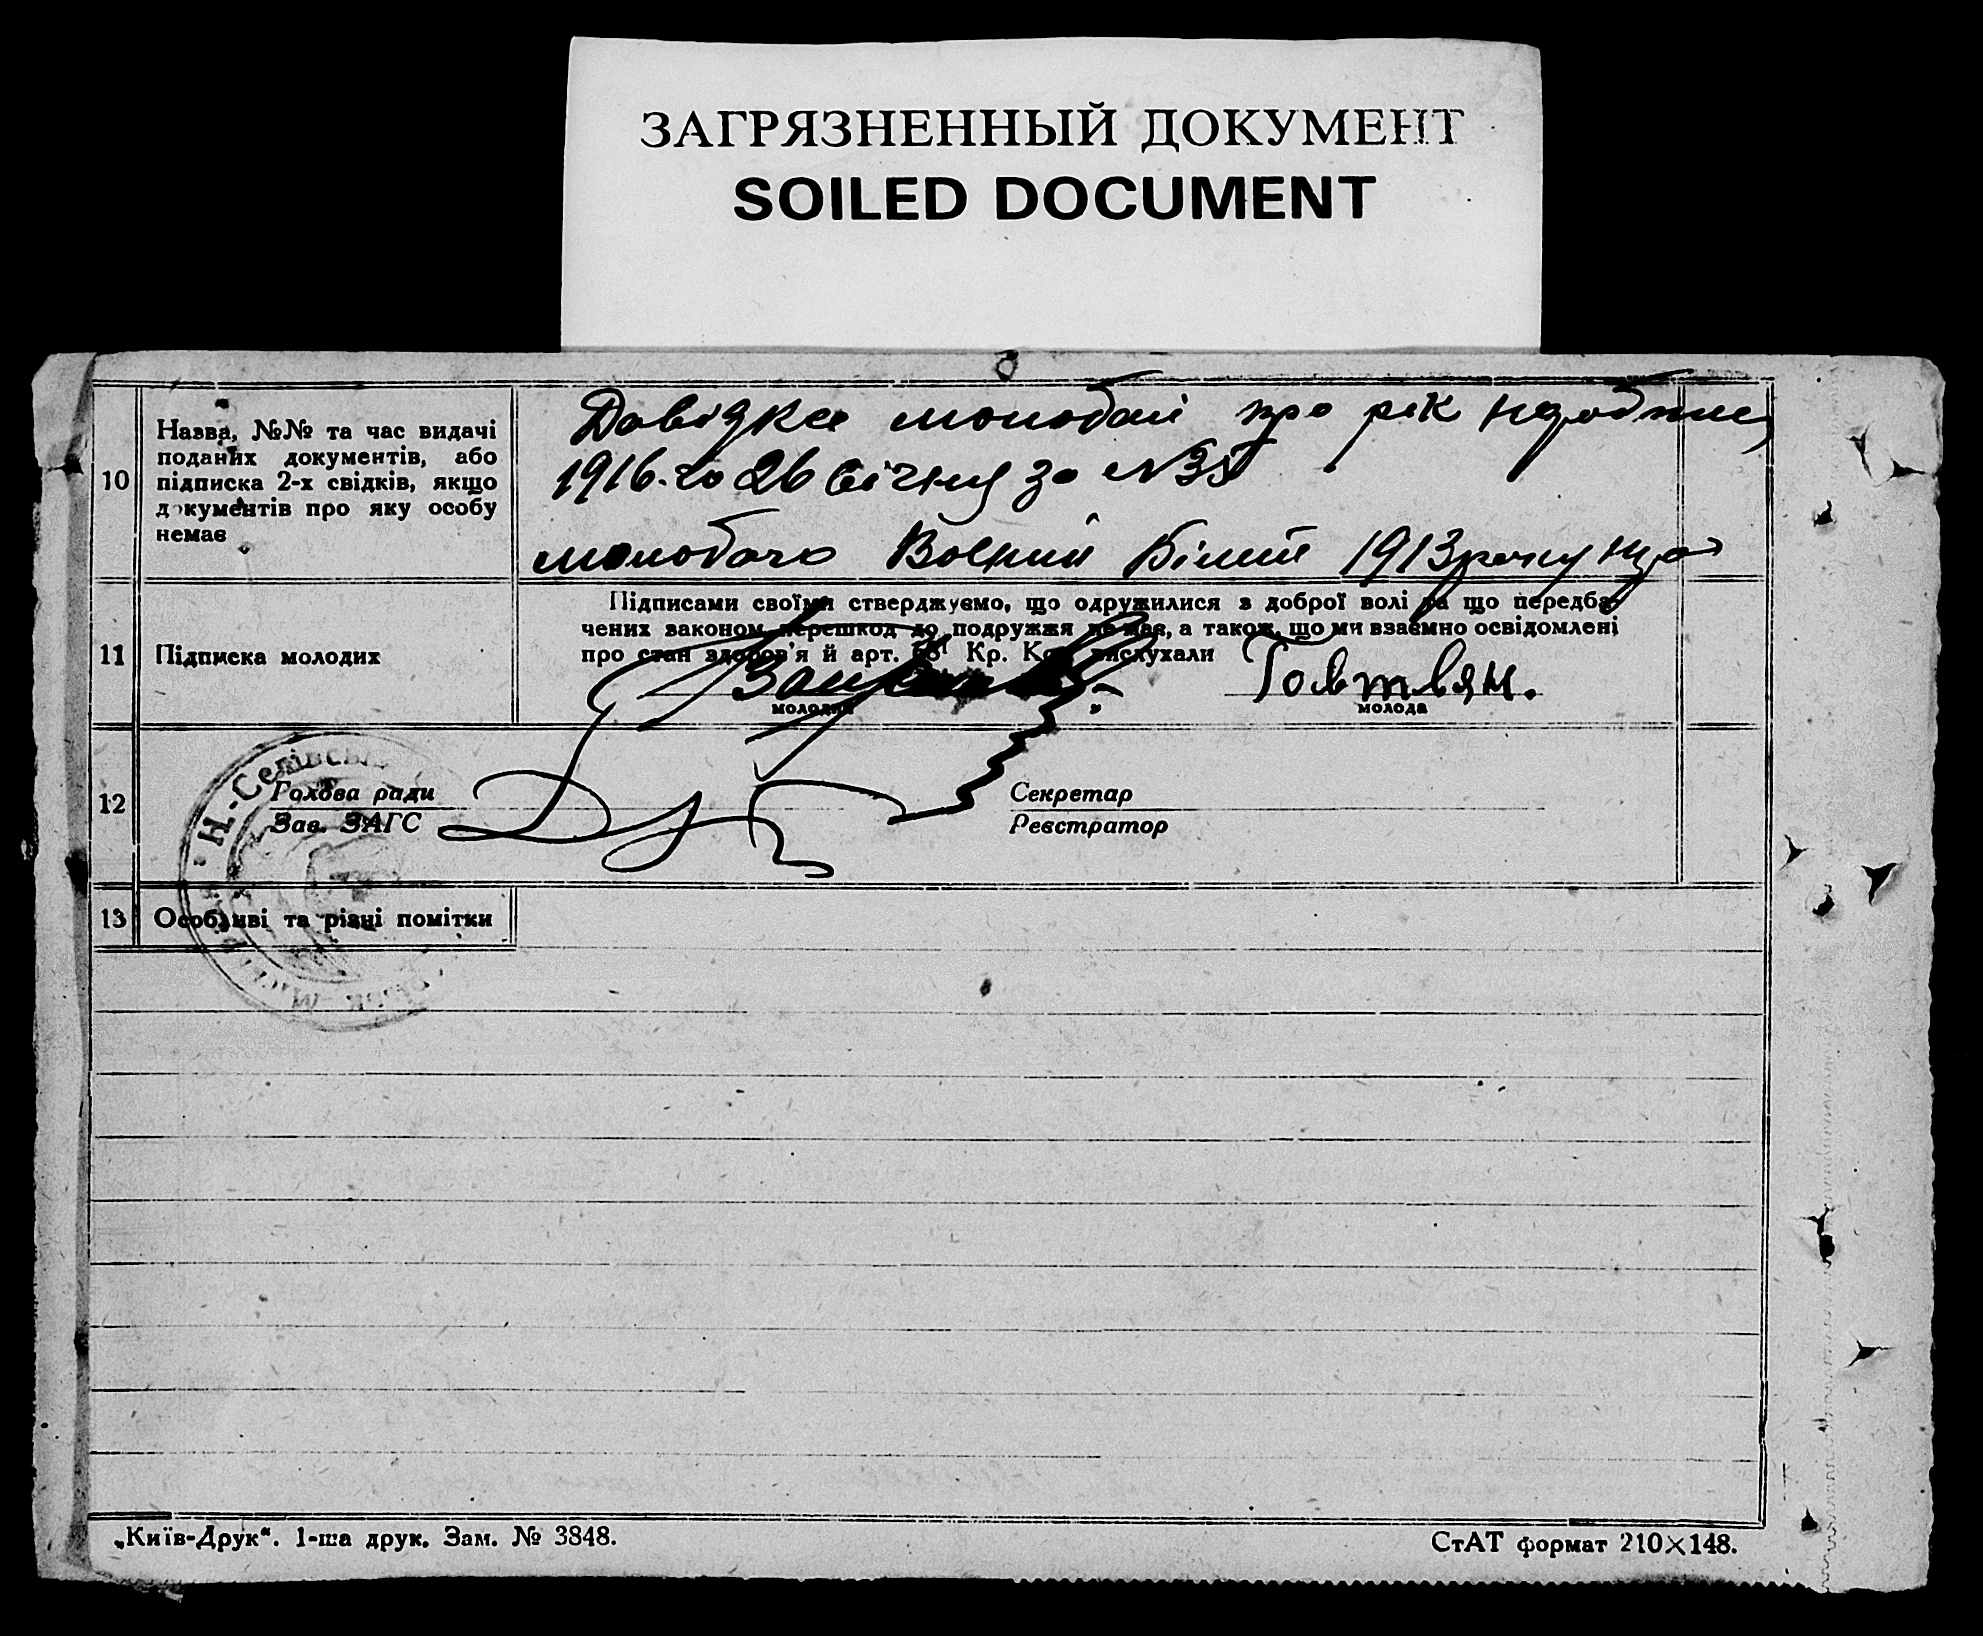 ЗАГРЯЗНЕННЫЙ ДОКУМЕНТ
SOILED DOCUMENT
10
Назва, №№ та час видачі
поданих документів, або
підписка 2-х свідків, якщо
документів про яку особу
немає
Довідка молодої про рік народження
1916-го 26 січня за №35
молодого Воєний білет 1913 року
11
Підписка молодих
Підписами своїми стверджуємо, що одружилися з доброї волі та що передба-
чених законом перешкод до подружжя немає, а також, що ми взаємно освідомлені
про стан здоров'я й арт. Кр. Код. вислухали
молодий
Говтвян.
молода
12
Н.-Селівськ
Голова ради
Зав. ЗАГС
Секретар
Реєстратор
13
Особливі та різні помітки
„Київ-Друк“. 1-ша друк. Зам. № 3848.
СтАТ формат 210×148.